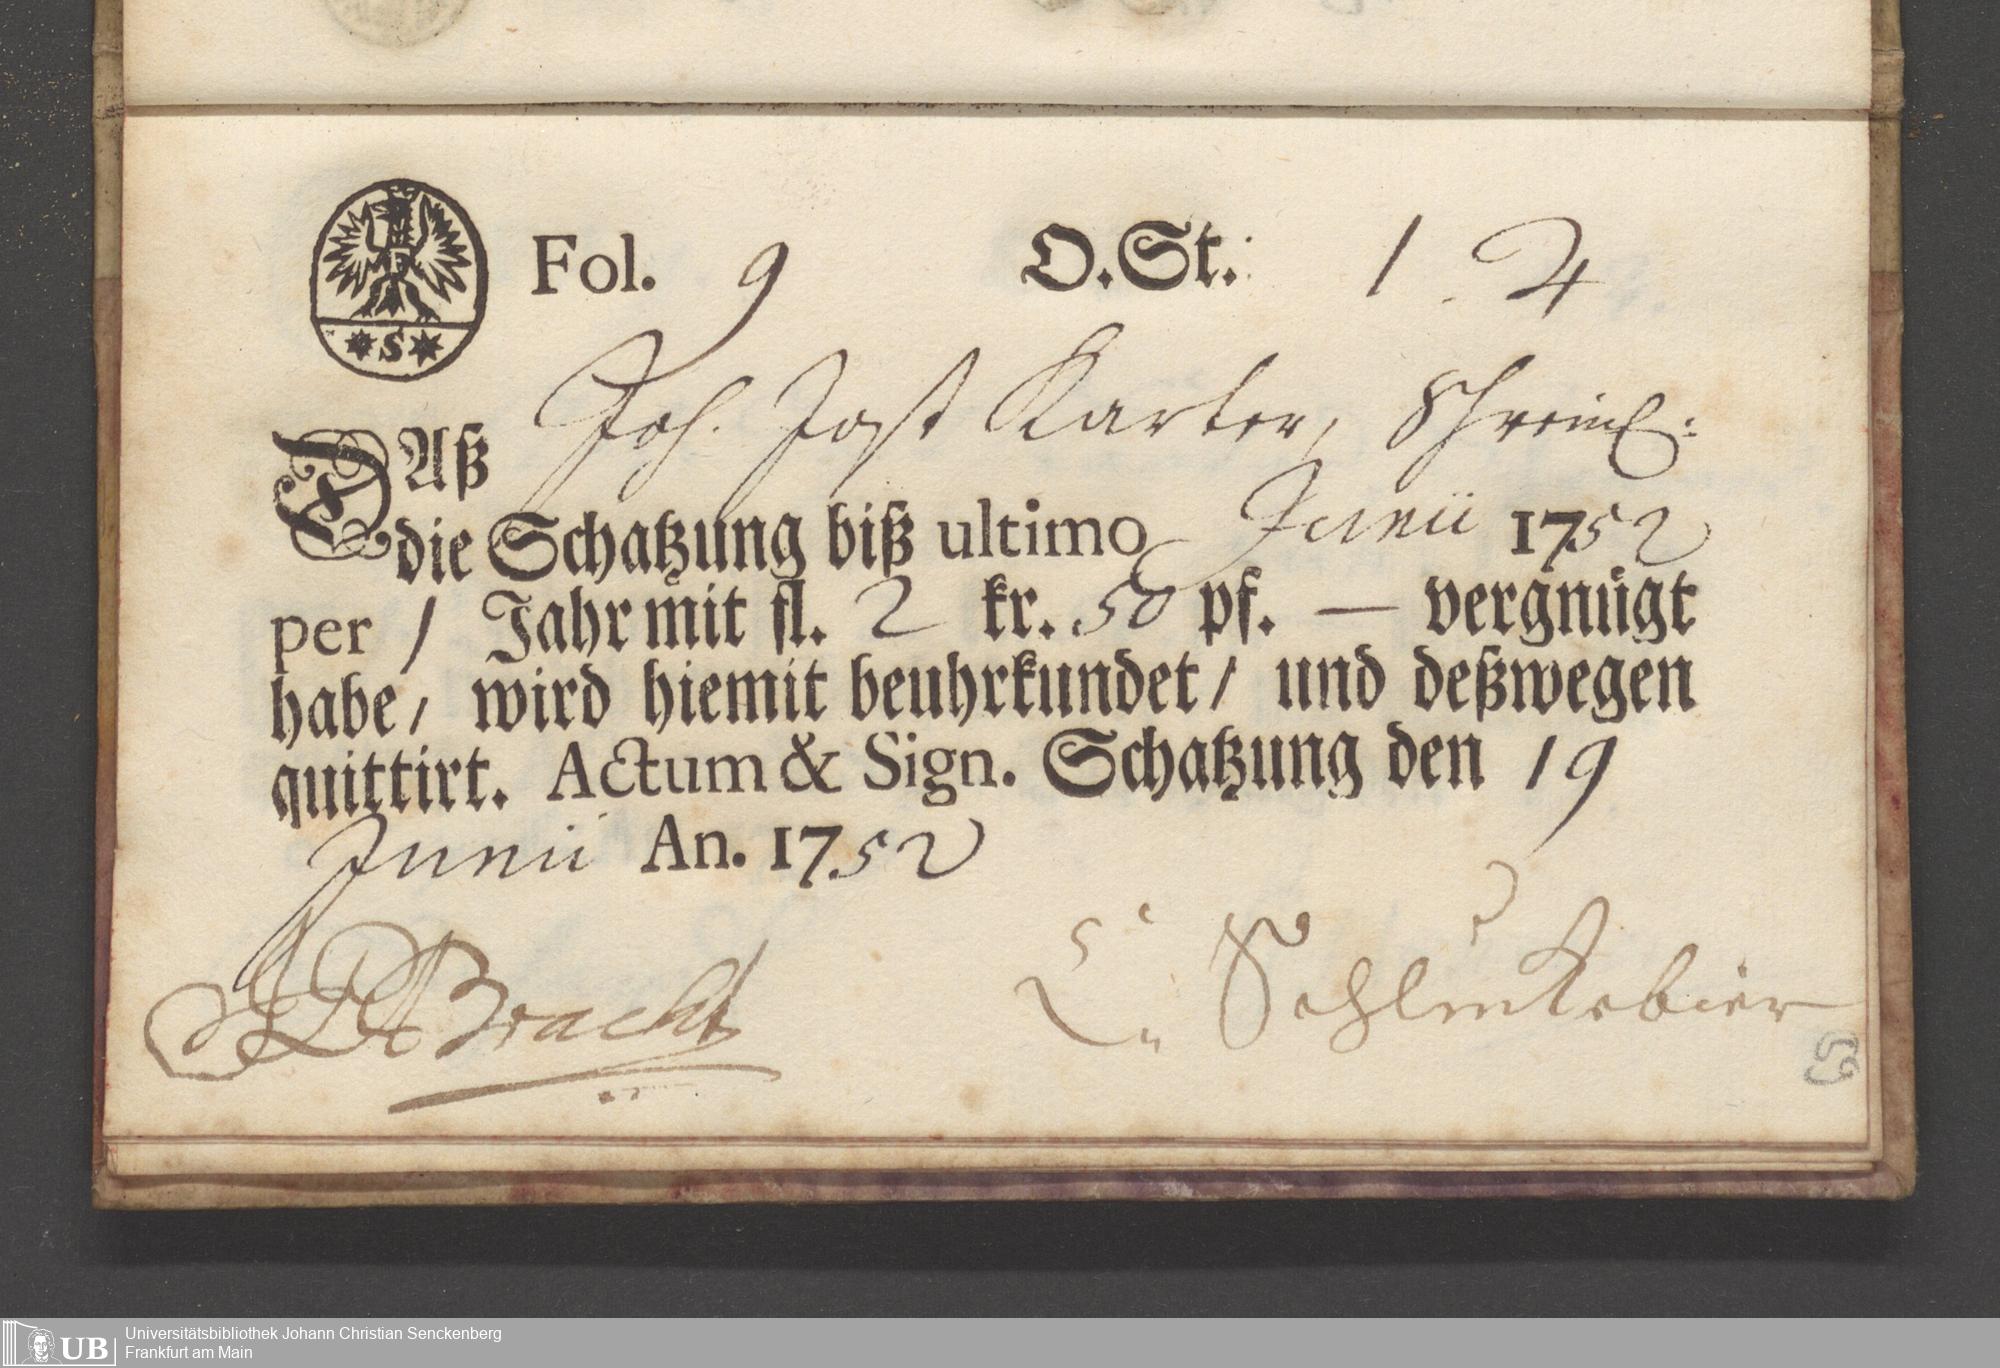 Fol. 9 O.St: 1. 4
*S*
DAß Joh. Jost Karter, Schrein:
die Schatzung biß ultimo Junii 1752
per 1 Jahr mit fl. 2 kr. 50 pf. — vergnügt
habe, wird hiemit beuhrkundet/ und deßwegen
quittirt. Actum & Sign. Schatzung den 19
Junii An. 1752
Bracht
53
UB Universitätsbibliothek Johann Christian Senckenberg
Frankfurt am Main